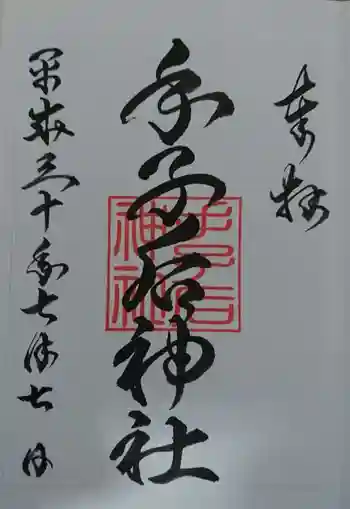 奉拝
手子后神社
平成三十年七月七日